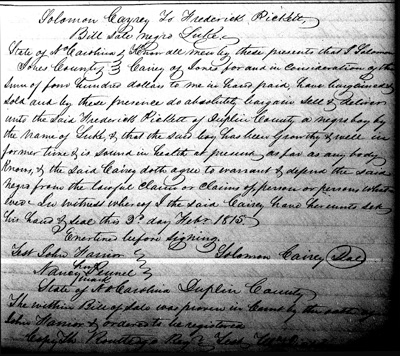 Solomon Cayrey To Frederick Pickett
Bill Sale Negro Luke
State of No Carolina } Know all men by these presents that I Solomon
Jones County } Cairey of Jones for and in consideration of the
Sum of four hundred dollars to me in hand paid, have bargained &
Sold and by these presence do absolutely bargain Sell & deliver
unto the Said Frederick Pickett of Duplin County a negro boy by
the name of Luke, & that the said boy has been Growthy & well in
former time & is sound in health at present as far as any body
Knows, & the said Cairey doth agree to warrant & defend the said
negro from the lawful Claim or claims of person or persons what
ever In witness whereof I the said Cairey have hereunto set
his hand & seal this 2d day Febr. 1815.
Enterline before signing.
Test John Warrior } Solomon Cairey Seal
Nancy her mark }
State of No Carolina Duplin County
The within Bill of Sale was proven in Court by the oath of
John Warrior & ordered to be registered
Copy Th. Routledge Regr Test